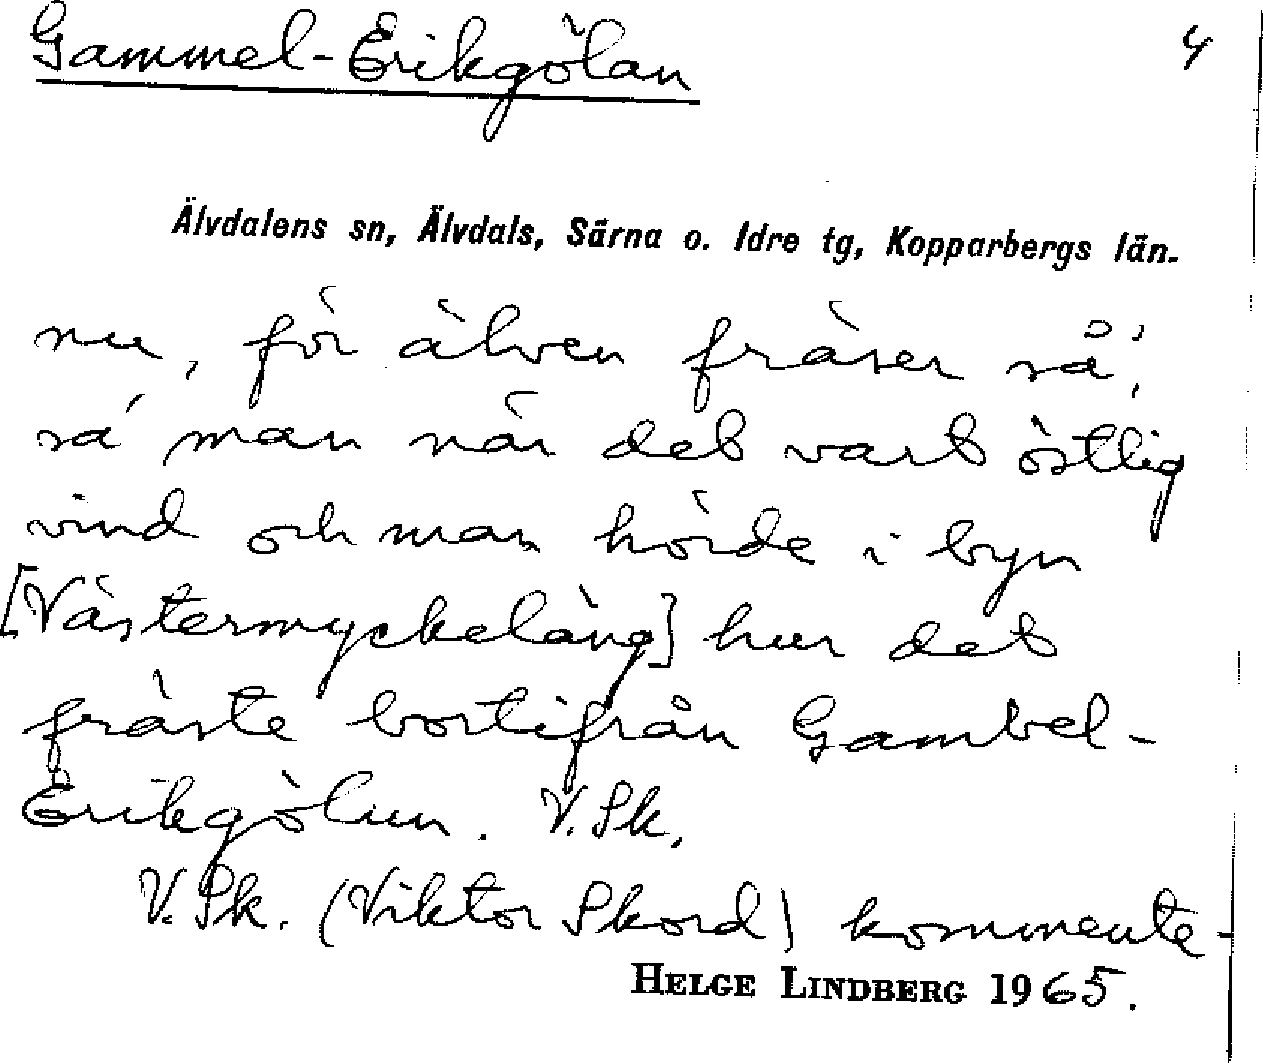 Gammel-Erikgölan 4
Älvdalens sn, Älvdals, Särna o. Idre tg, Kopparbergs län.
nu, för älven fräser så,'
sa' man när det vart östlig
vind och man hörde i byn
[Västermyckeläng] hur det
fräste bortifrån Gambel-
Erikgölun. V. Sk.
V. Sk. (Viktor Skord) kommente-
HELGE LINDBERG 1965.